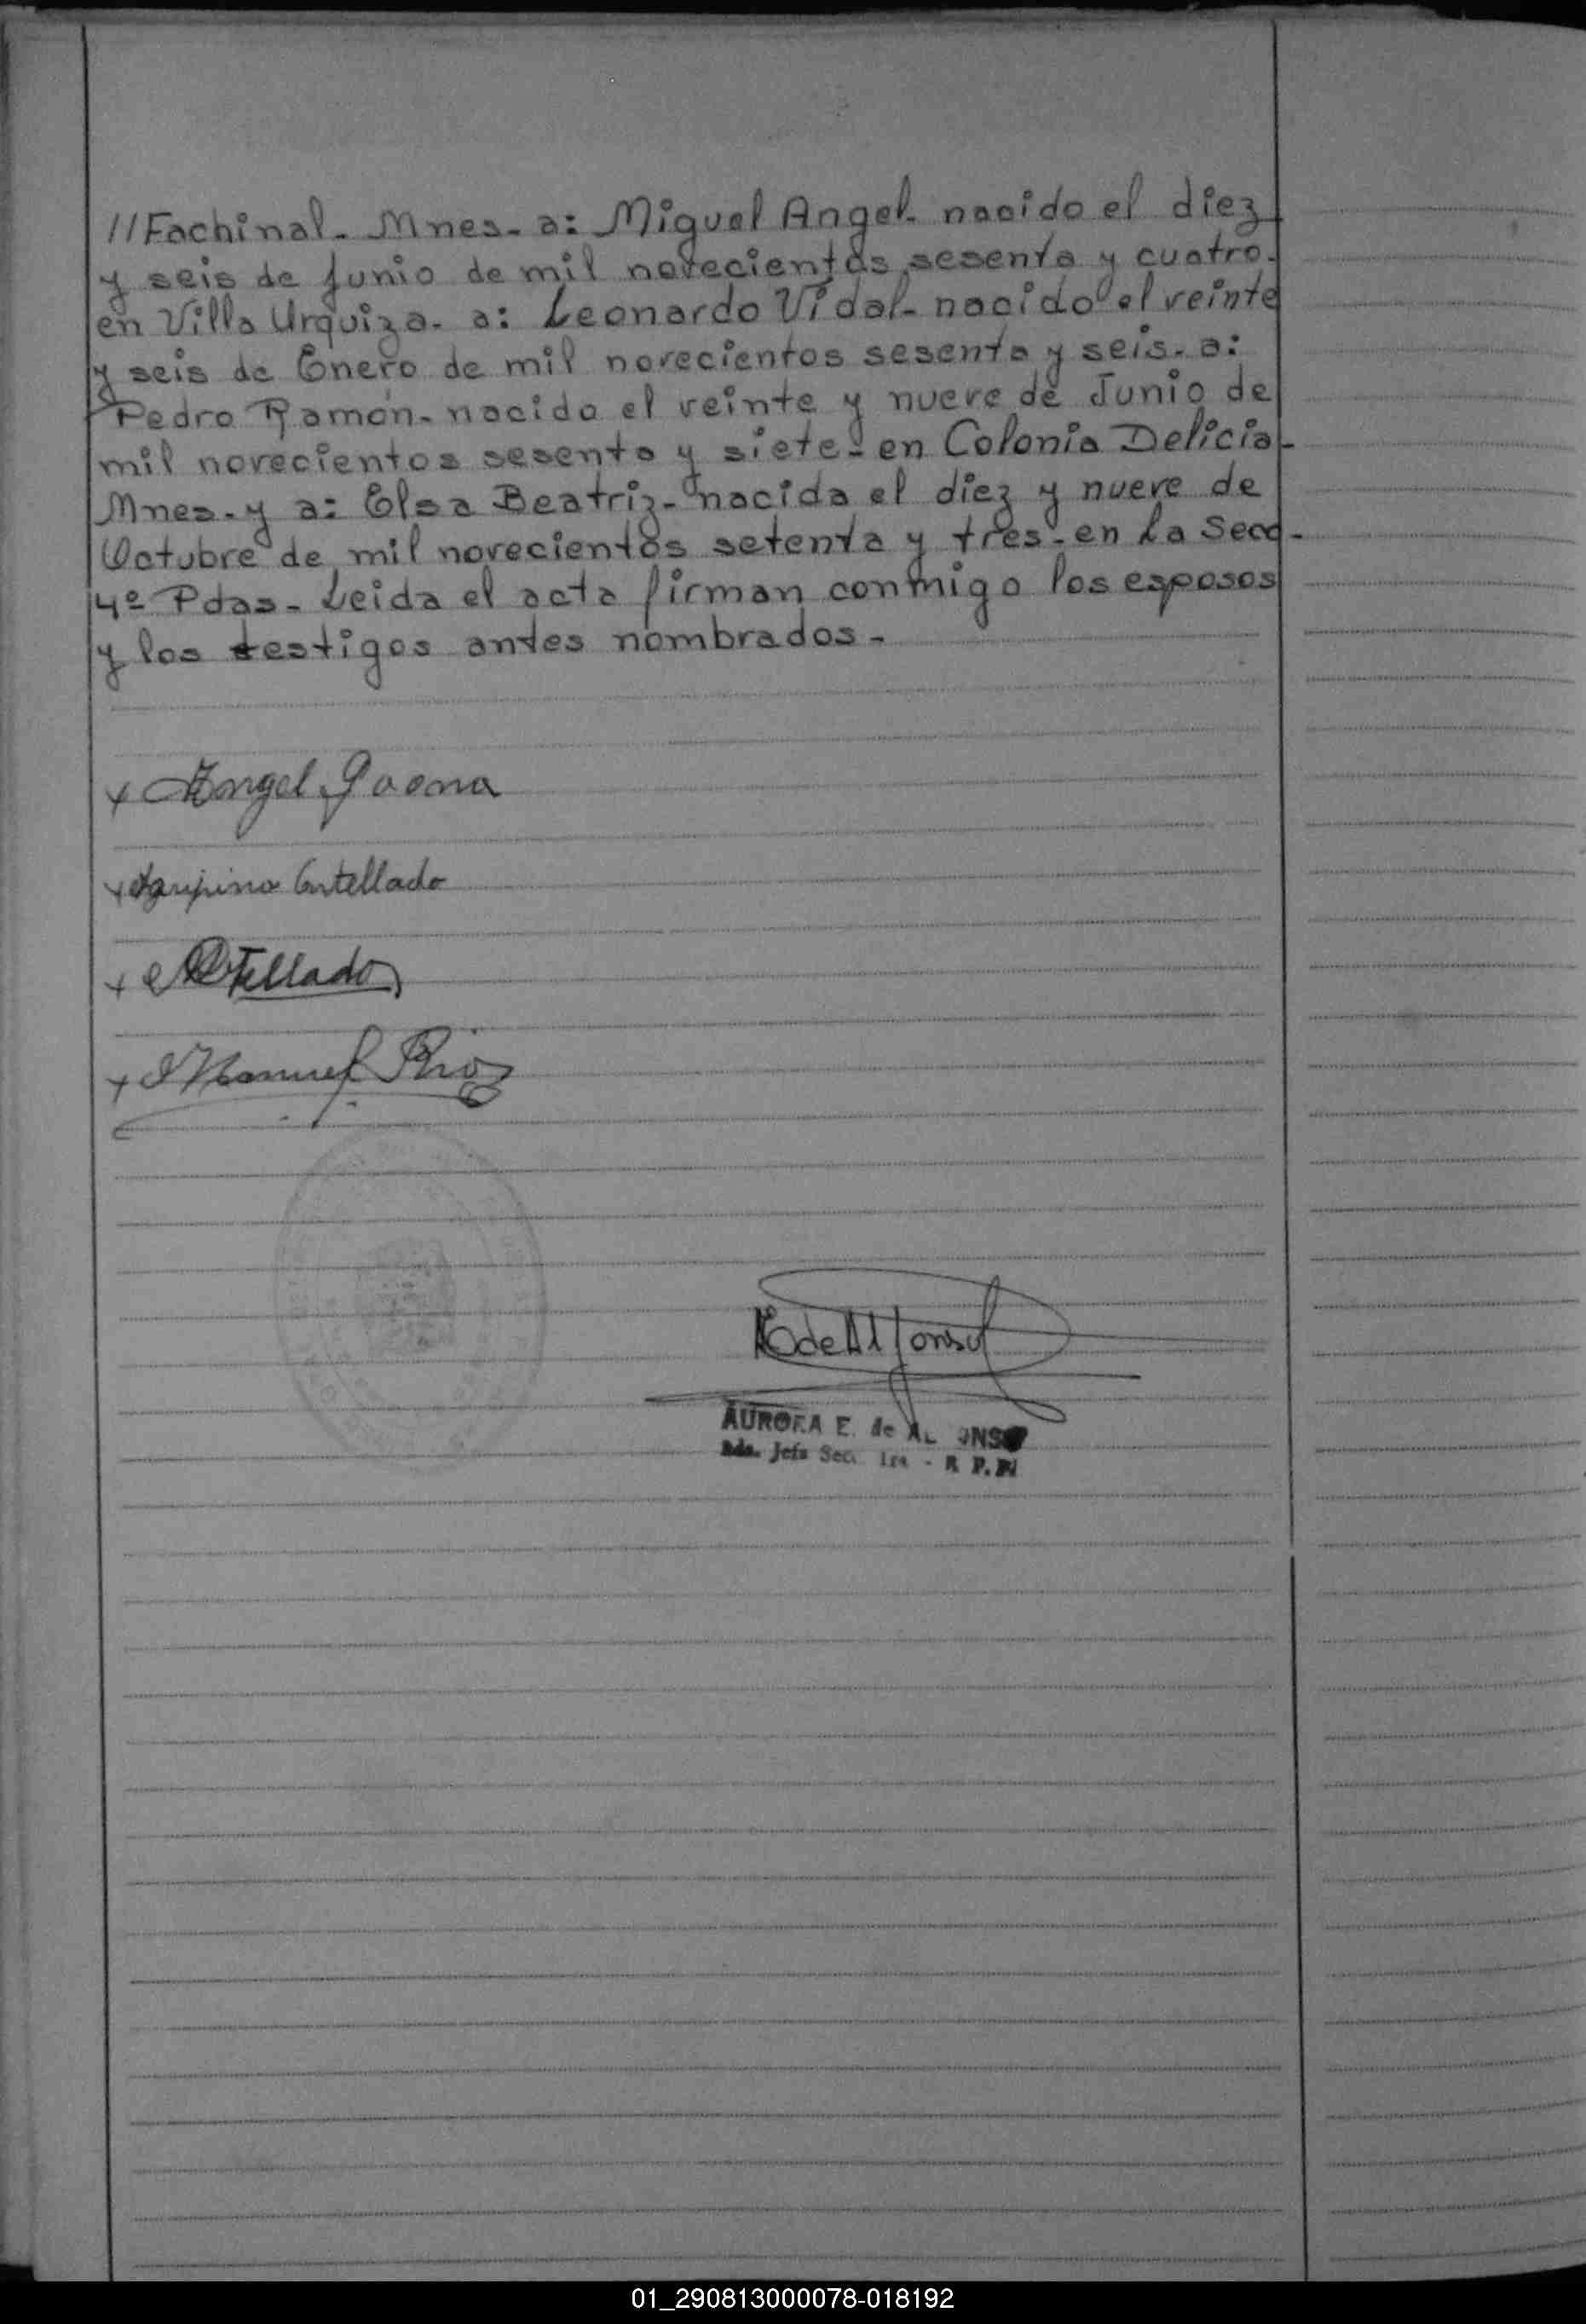 //Fachinal- Mnes- a: Miguel Angel- nacido el diez
y seis de Junio de mil novecientos sesenta y cuatro-
en Villa Urquiza- a: Leonardo Vidal- nacido el veinte
y seis de Enero de mil novecientos sesenta y seis- a:
Pedro Ramón- nacido el veinte y nueve de Junio de
mil novecientos sesenta y siete- en Colonia Delicia-
Mnes- y a: Elsa Beatriz- nacida el diez y nueve de
Octubre de mil novecientos setenta y tres- en La Secc-
4º Pdas- Leida el acta firman conmigo los esposos
y los testigos antes nombrados-
x Angel Gaona
x Agripina Entellado
x
x Manuel Rios
E de Alfonso
AURORA E. de AL ONSO
Jefa Secc. 1ra - R. P.
01_290813000078-018192